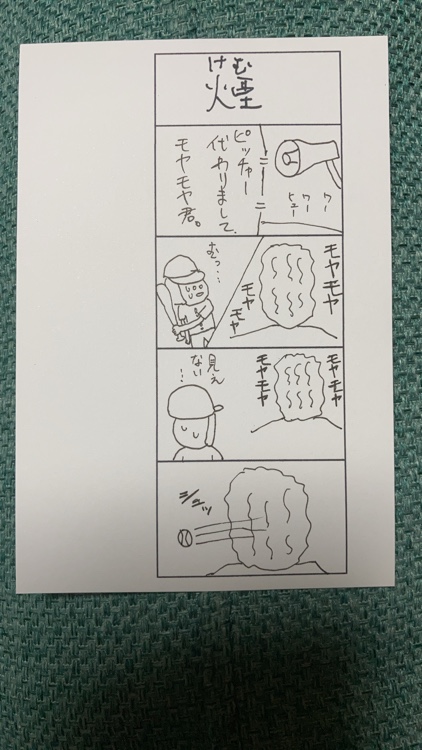 けむ
煙
ワー
ワー
ヒュー
ピッチャー
代わりまして、
モヤモヤ君。
モヤモヤ
モヤ
モヤ
むっ…
モヤモヤ
モヤモヤ
見え
ない…
シュッ